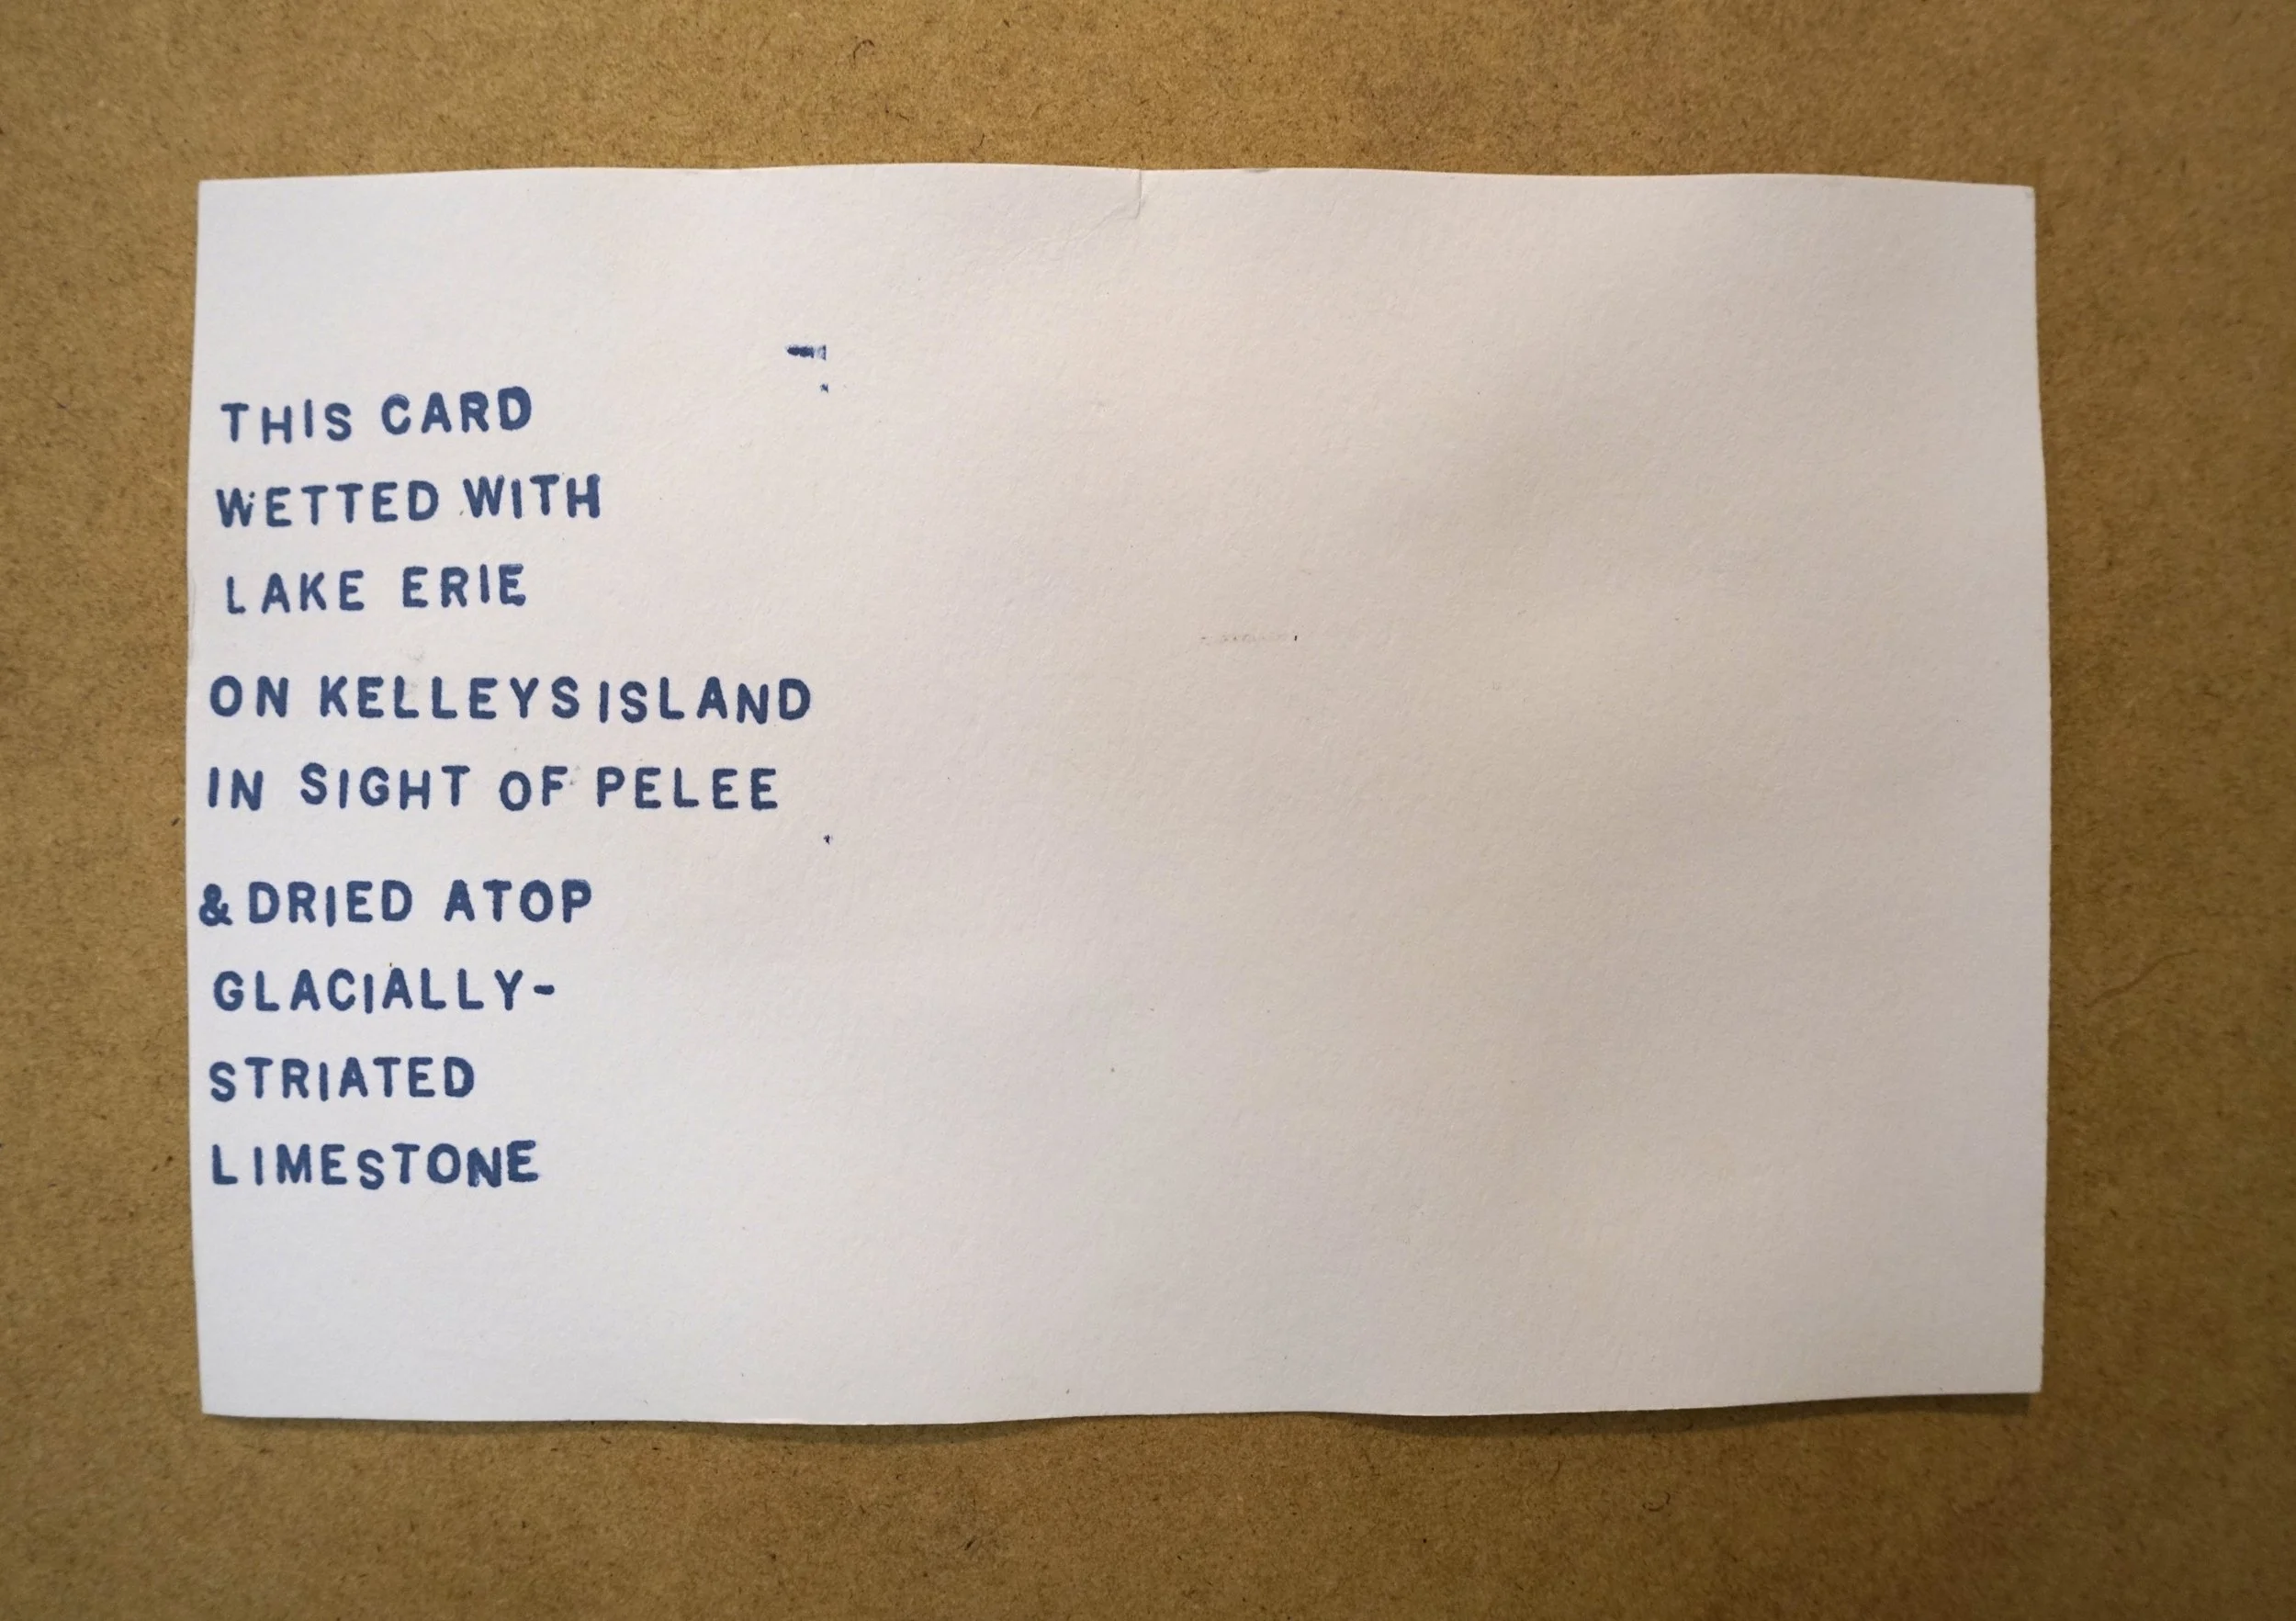 THIS CARD
WETTED WITH
LAKE ERIE
ON KELLEYS ISLAND
IN SIGHT OF PELEE
& DRIED ATOP
GLACIALLY-
STRIATED
LIMESTONE